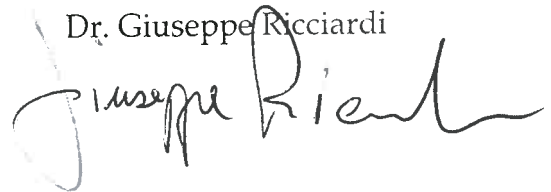 Dr. Giuseppe Ricciardi
Giuseppe Ricciardi